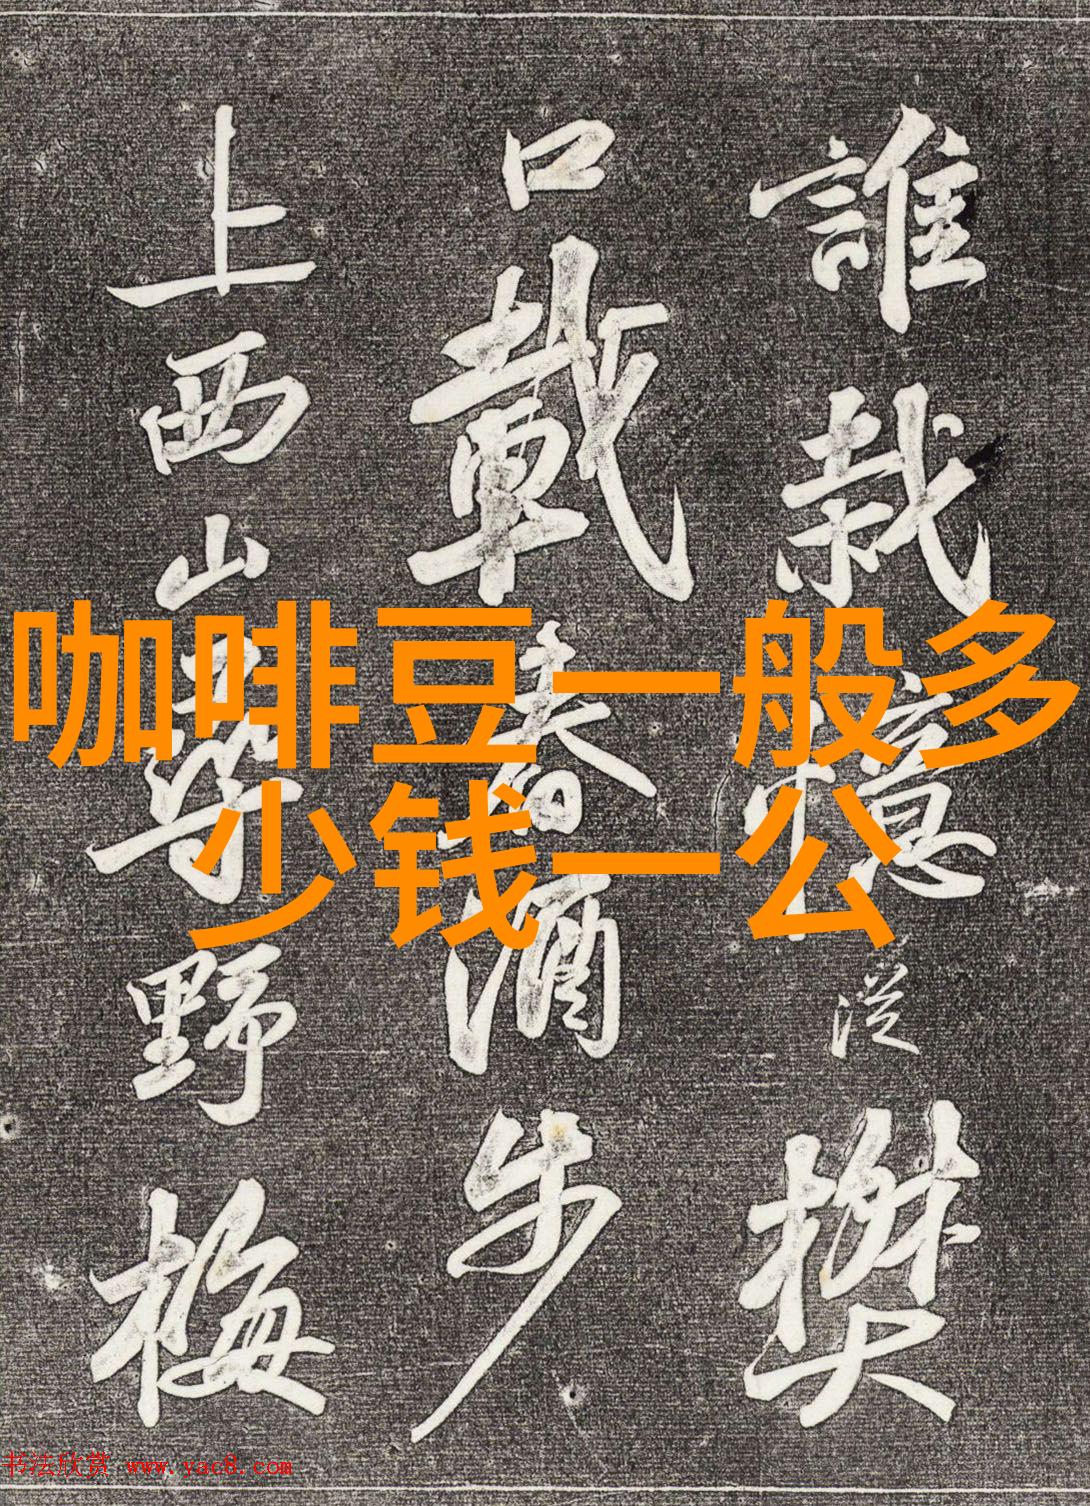 咖啡豆一般多
少钱一公
誰栽憶從樊
口載春酒步
上西山尋野梅
书法欣赏 www.yac8.com